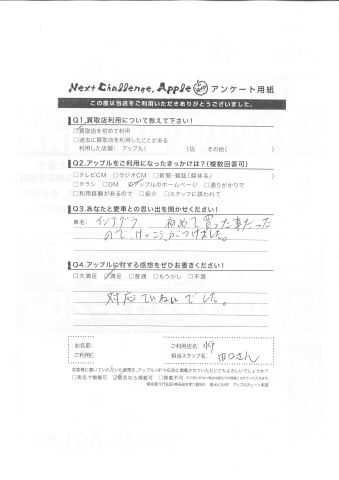 Next Challenge, Apple アンケート用紙
この度は当店をご利用いただきありがとうございました。
Q1,買取店利用について教えて下さい!
□買取店を初めて利用
□過去に買取店を利用したことがある
利用した店舗: アップル( )店 その他( )
Q2,アップルをご利用になったきっかけは?(複数回答可)
□テレビCM □ラジオCM □新聞・雑誌(媒体名/ )
□チラシ □DM ☑アップルのホームページ □通りがかりで
□利用経験があるので □紹介 □スタッフに誘われて
Q3,あなたと愛車との思い出を聞かせください!
車名: インテグラ 初めて買った車だった
ので、けっこうきずつけました。
Q4,アップルに対する感想をぜひお書きください!
□大満足 ☑満足 □普通 □もう少し □不満
対応ていねいでした。
お名前:
ご利用店名:
ご利用
担当スタッフ名: 田口さん
お客様に書いていただいた感想を、アップルHPや広告に掲載させていただいてもよろしいでしょうか?
□実名で掲載可 ☑匿名なら掲載可 □掲載不可